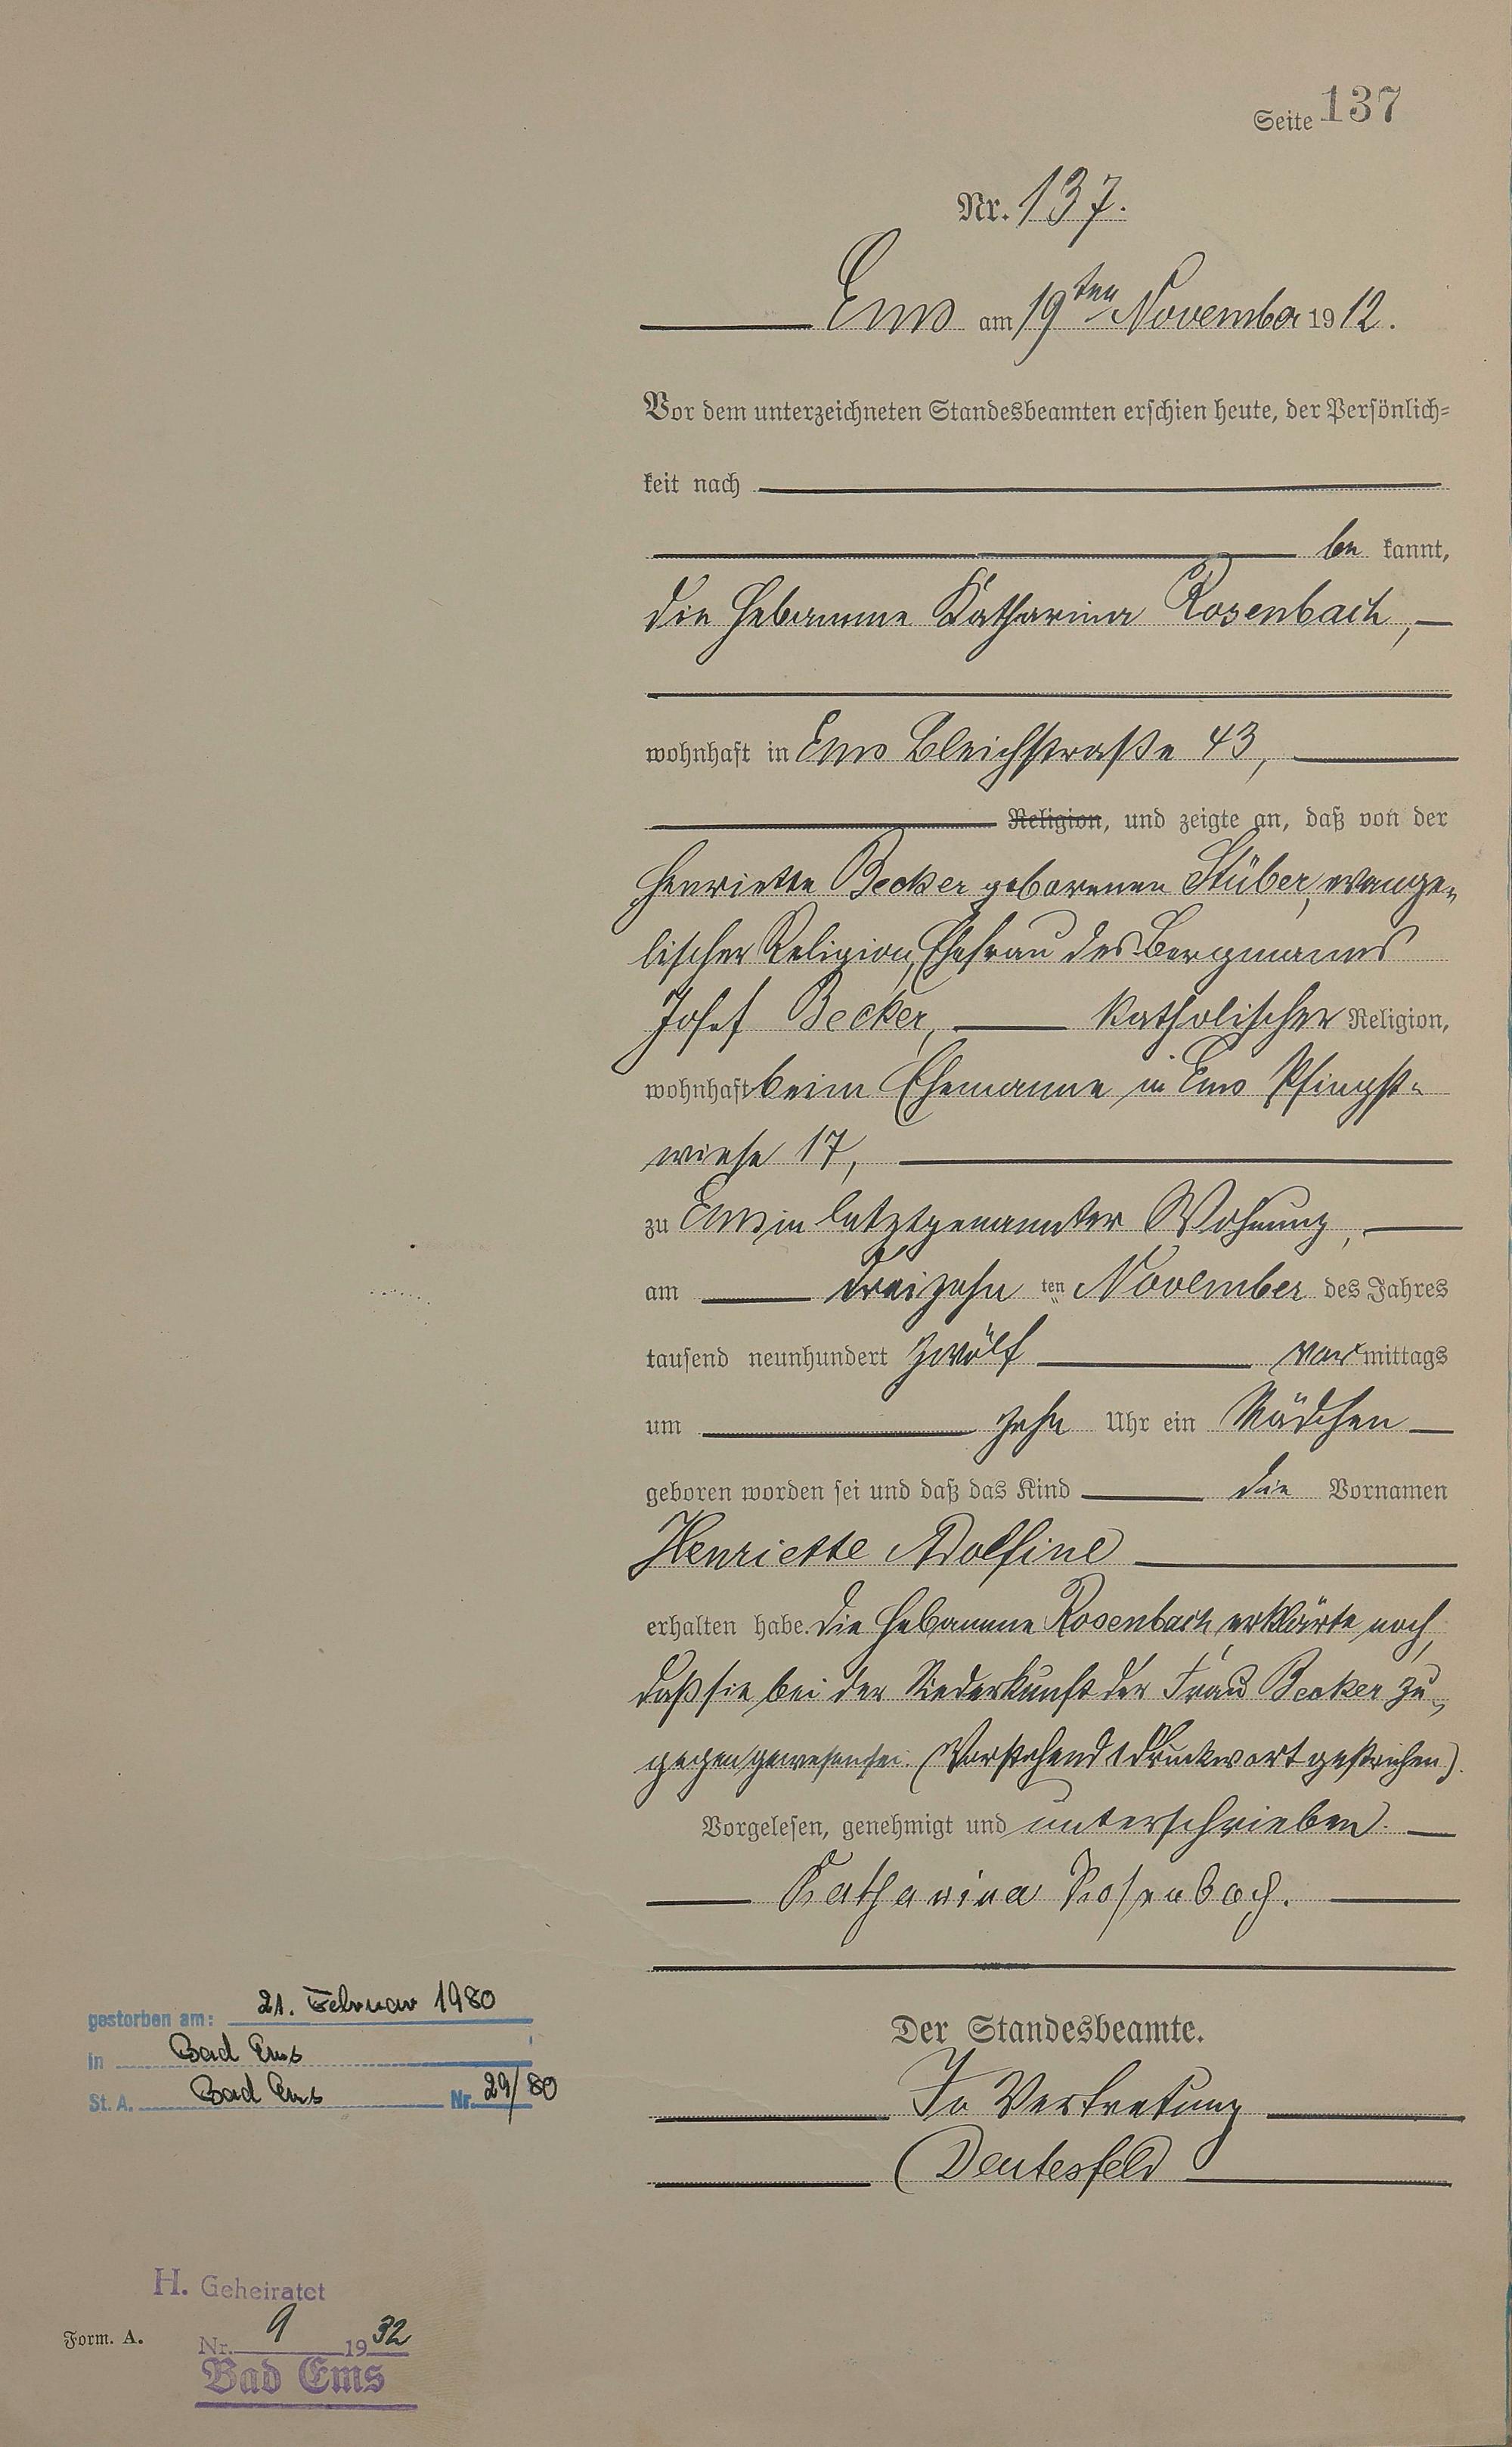 Seite 137
Nr. 137.
Ems am 19ten November 1912.
Vor dem unterzeichneten Standesbeamten erschien heute, der Persönlich=
keit nach
be kannt,
die Hebamme Katharina Rosenbach,
wohnhaft in Ems Bleichstraße 43,
Religion, und zeigte an, daß von der
Henriette Becker geborenen Stüber, evange=
lischer Religion, Ehefrau des Bergmanns
Josef Becker, katholischer Religion,
wohnhaft beim Ehemanne in Ems Pfingst=
wiese 17,
zu Ems in letztgenannter Wohnung,
am dreizehn ten November des Jahres
tausend neunhundert zwölf vormittags
um zehn Uhr ein Mädchen
geboren worden sei und daß das Kind die Vornamen
Henriette Adolfine
erhalten habe. Die Hebamme Rosenbach erklärte noch,
daß sie bei der Niederkunft der Frau Becker zu=
gegen gewesen sei. (Vorstehend 1 Druckwort gestrichen).
Vorgelesen, genehmigt und unterschrieben.
Katharina Rosenbach.
Der Standesbeamte.
In Vertretung
Deutesfeld
gestorben am: 21. Februar 1980
in Bad Ems
St. A. Bad Ems Nr. 29/80
H. Geheiratet
Nr. 9 1932
Bad Ems
Form. A.